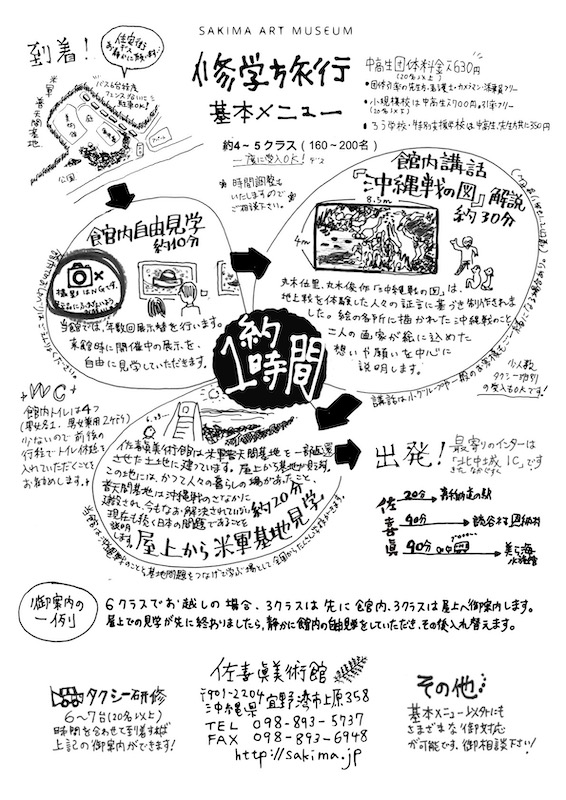 SAKIMA ART MUSEUM
到着！
住宅街です
お静かに願います
米軍
普天間基地
バス6台程度
フェンス沿いに
駐車OK！
公園
修学旅行
基本メニュー
約4～5クラス（160～200名）
一度に受入OK！デス
時間調整も
いたしますので
ご相談下さい。
中高生団体料金1人630円
（20名以上）
小規模校は中高生1人700円
館内自由見学
約10分
撮影はNGです。
当館では、年数回展示替を行います。
来館時に開催中の展示を、
自由に見学していただきます。
館内講話
「沖縄戦の図」解説
約30分
8.5m
4m
丸木位里、丸木俊作「沖縄戦の図」は、
地上戦を体験した人々の証言に基づき制作されま
した。絵の各所に描かれた沖縄戦のこと、
二人の画家が絵に込めた
想いや願いを中心に
説明します。
約
1時間
少人数
タクシー班別
の受入もOKです！
WC
館内トイレは4つ
少ないので前後の
行程でトイレ休憩を
入れていただくことを
お勧めします。
6.23
佐喜眞美術館は米軍普天間基地を一部返還
させた土地に建っています。屋上から基地が見え、
この地には、かつて人々の暮らしの場があったこと、
普天間基地は沖縄戦のさなかに
建設され、今もなお解決されていない、
現在も続く日本の問題であることを
説明
します。
約20分
屋上から米軍基地見学
出発！
最寄りのインターは
「北中城IC」です
きたなかぐすく
佐喜眞
20分
40分
読谷村・恩納村
90分
美ら海
水族館
御案内の
一例
6クラスでお越しの場合、3クラスは先に館内、3クラスは屋上へ御案内します。
屋上での見学が先に終わりましたら、静かに館内の自由見学をしていただき、その後入れ替えます。
タクシー研修
6～7台（20名以上）
時間を合わせて到着すれば
上記の御案内ができます！
佐喜眞美術館
〒901-2204
沖縄県宜野湾市上原358
TEL 098-893-5737
FAX 098-893-6948
http://sakima.jp
その他
基本メニュー以外にも
さまざまな御対応
が可能です。御相談下さい！